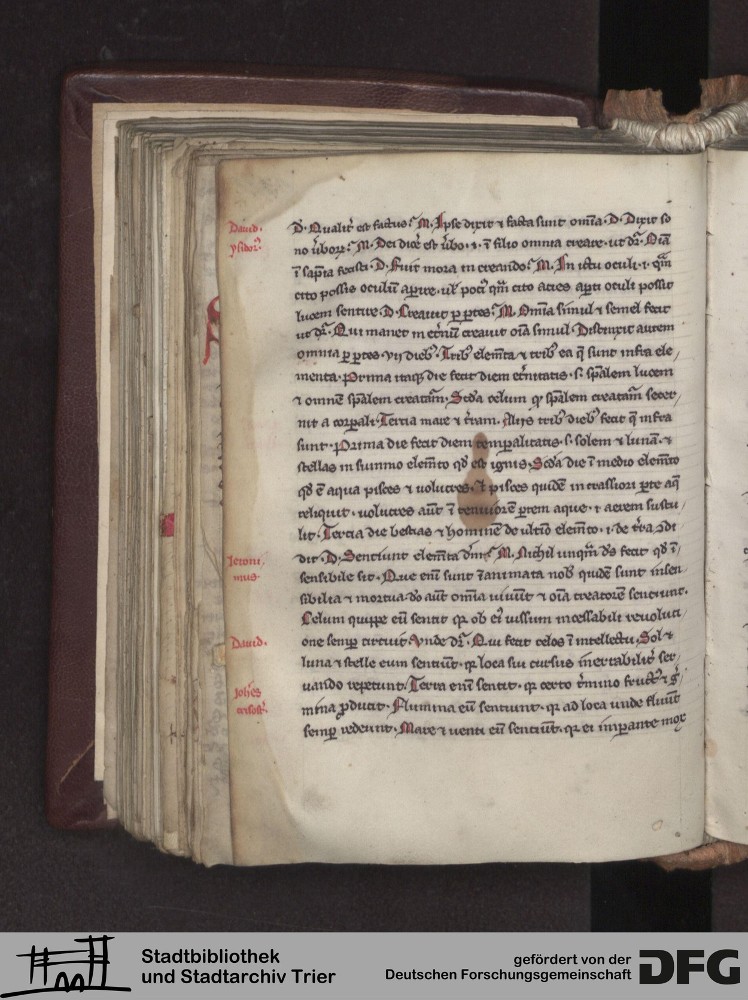 Dauid.
ysidor᷒
D. Qualit̄ est factus? M. Ipse dixit ⁊ facta sunt om̄ia. D. Dixit so
no v̄borꝝ? M. Dei dice̅ est v̄bo .i. ī filio omnia creare. ut dr̄. Om̄ia
ī sapīa fecisti. D. Fuit mora in creando? M. In ictu oculi .i. qm̄
cito possis oculū aꝑire. ul̓ poci᷒ qm̄ cito acies aꝑti oculi possit
lucem sentire. D. Creauit ꝑ ꝑtes? M. Om̄ia simul ⁊ semel fecit
ut dr̄. Qui manet in et̄nū creauit oīa simul. Distinxit autem
omnia ꝑ ꝑtes vij dieb᷒. Trib᷒ elem̄ta ⁊ trib᷒ ea q̄ sunt infra ele
menta. Prima itaqꝫ die fecit diem et̄nitatis .s. sp̄alem lucem
⁊ omnē sp̄alem creat̄am. Scd̄a celum qꝫ sp̄alem creat̄am secer
nit a corꝑali. Tercia mare ⁊ t̄ram. Alijs trib᷒ dieb᷒ fecit q̄ infra
sunt. Prima die fecit diem temꝑalitatis .s. solem ⁊ lunā. ⁊
stellas in summo elem̄to qd̄ est ignis. Scd̄a die ī medio elem̄to
qd̄ ē aqua pisces ⁊ volucres. Et pisces quidē in crassiori ꝑte aq̄
reliquit. volucres aūt ī tenuiorē ꝑtem aque .i. aerem sustu
lit. Tercia die bestias ⁊ hominē de ultīo elem̄to .i. de t̄ra ꝯdi
Ieroni
mus
dit. D. Sentiunt elem̄ta dm̄? M. Nichil unqm̄ ds̄ fecit qd̄ ī
sensibile sit. Que eni̅ sunt īanimata nob̓ quidē sunt insen
sibilia ⁊ mortua. do aūt omīa uiuūt ⁊ oīa creatorē senciunt.
Celum quippe eū sentit qꝛ ob ei᷒ iussum incessabili reuoluci
Dauid.
one semꝑ circuit. Vnde dr̄. Qui fecit celos ī intellectu. Sol ⁊
luna ⁊ stelle eum sentiūt. qꝛ loca sui cursus inerrabilit̄ ser
Joh̄es
crisost᷒
uando repetunt. Terra enī sentit. qꝛ certo t̄mino fruct᷒ ⁊ g̓
mina ꝓducit. Flumina eū sentiunt. qꝛ ad loca unde fluūt
semꝑ redeunt. Mare ⁊ uenti eū senciūt. qꝛ ei imꝑante mox
Stadtbibliothek
und Stadtarchiv Trier
gefördert von der
Deutschen Forschungsgemeinschaft
DFG